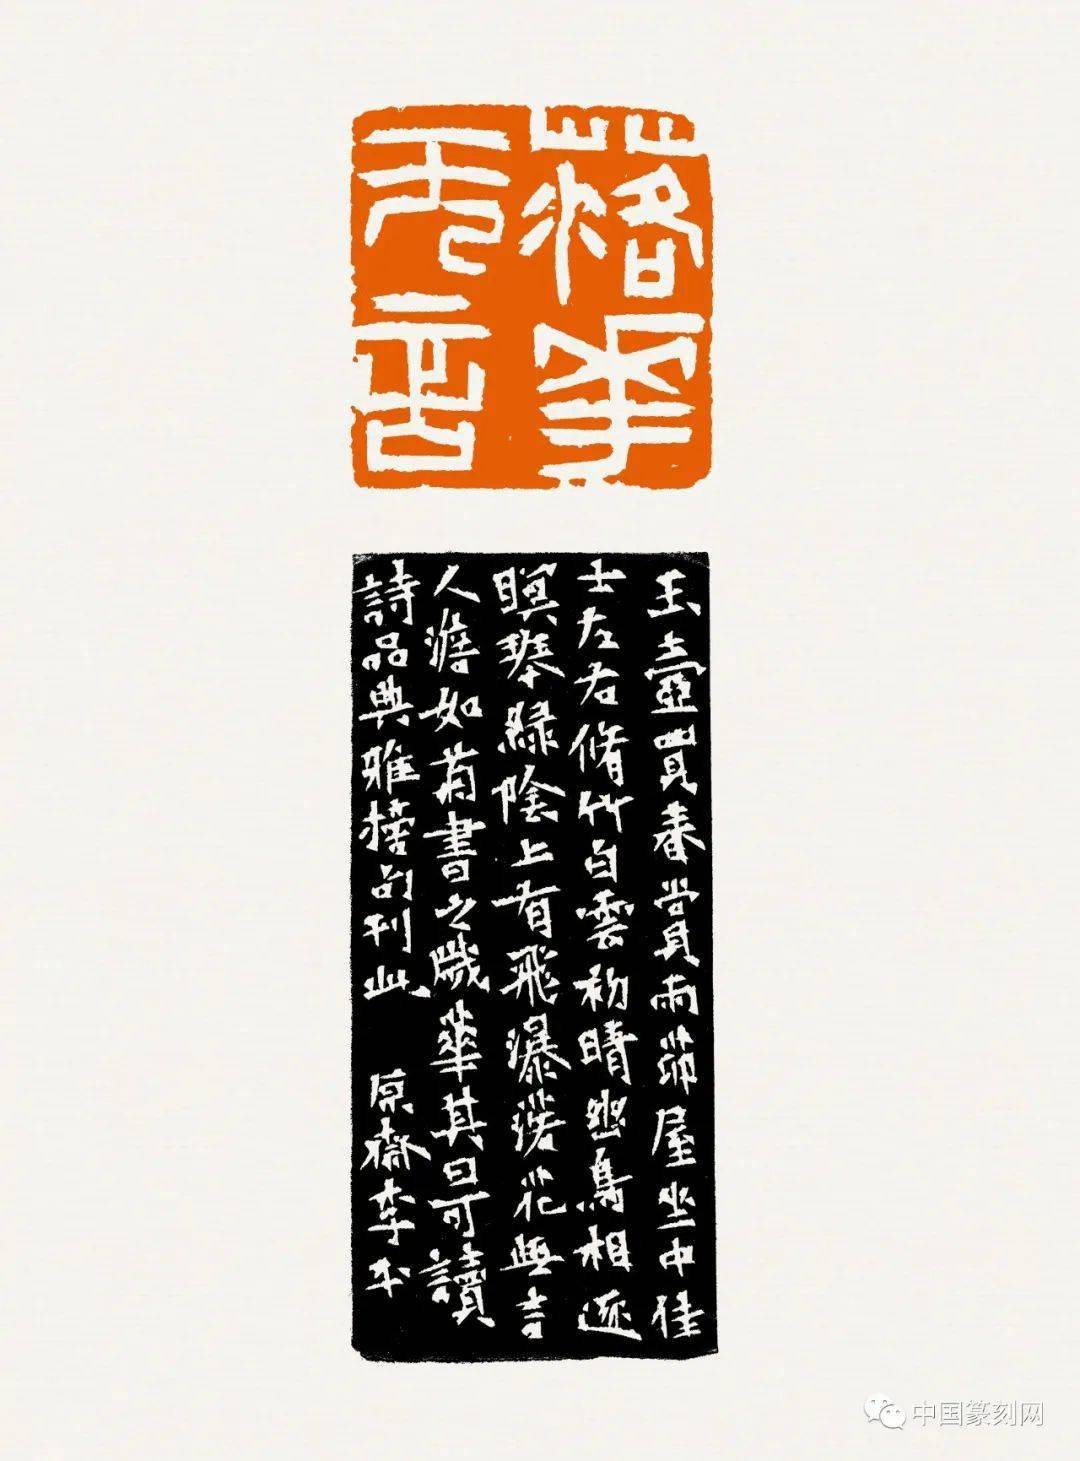 落華
无言
玉壺買春賞雨茆屋坐中佳
士左右脩竹白雲初晴幽鳥相逐
瞑琴綠陰上有飛瀑落花無言
人澹如菊書之歲華其曰可讀
詩品典雅句刊此 原齋李
中国篆刻网